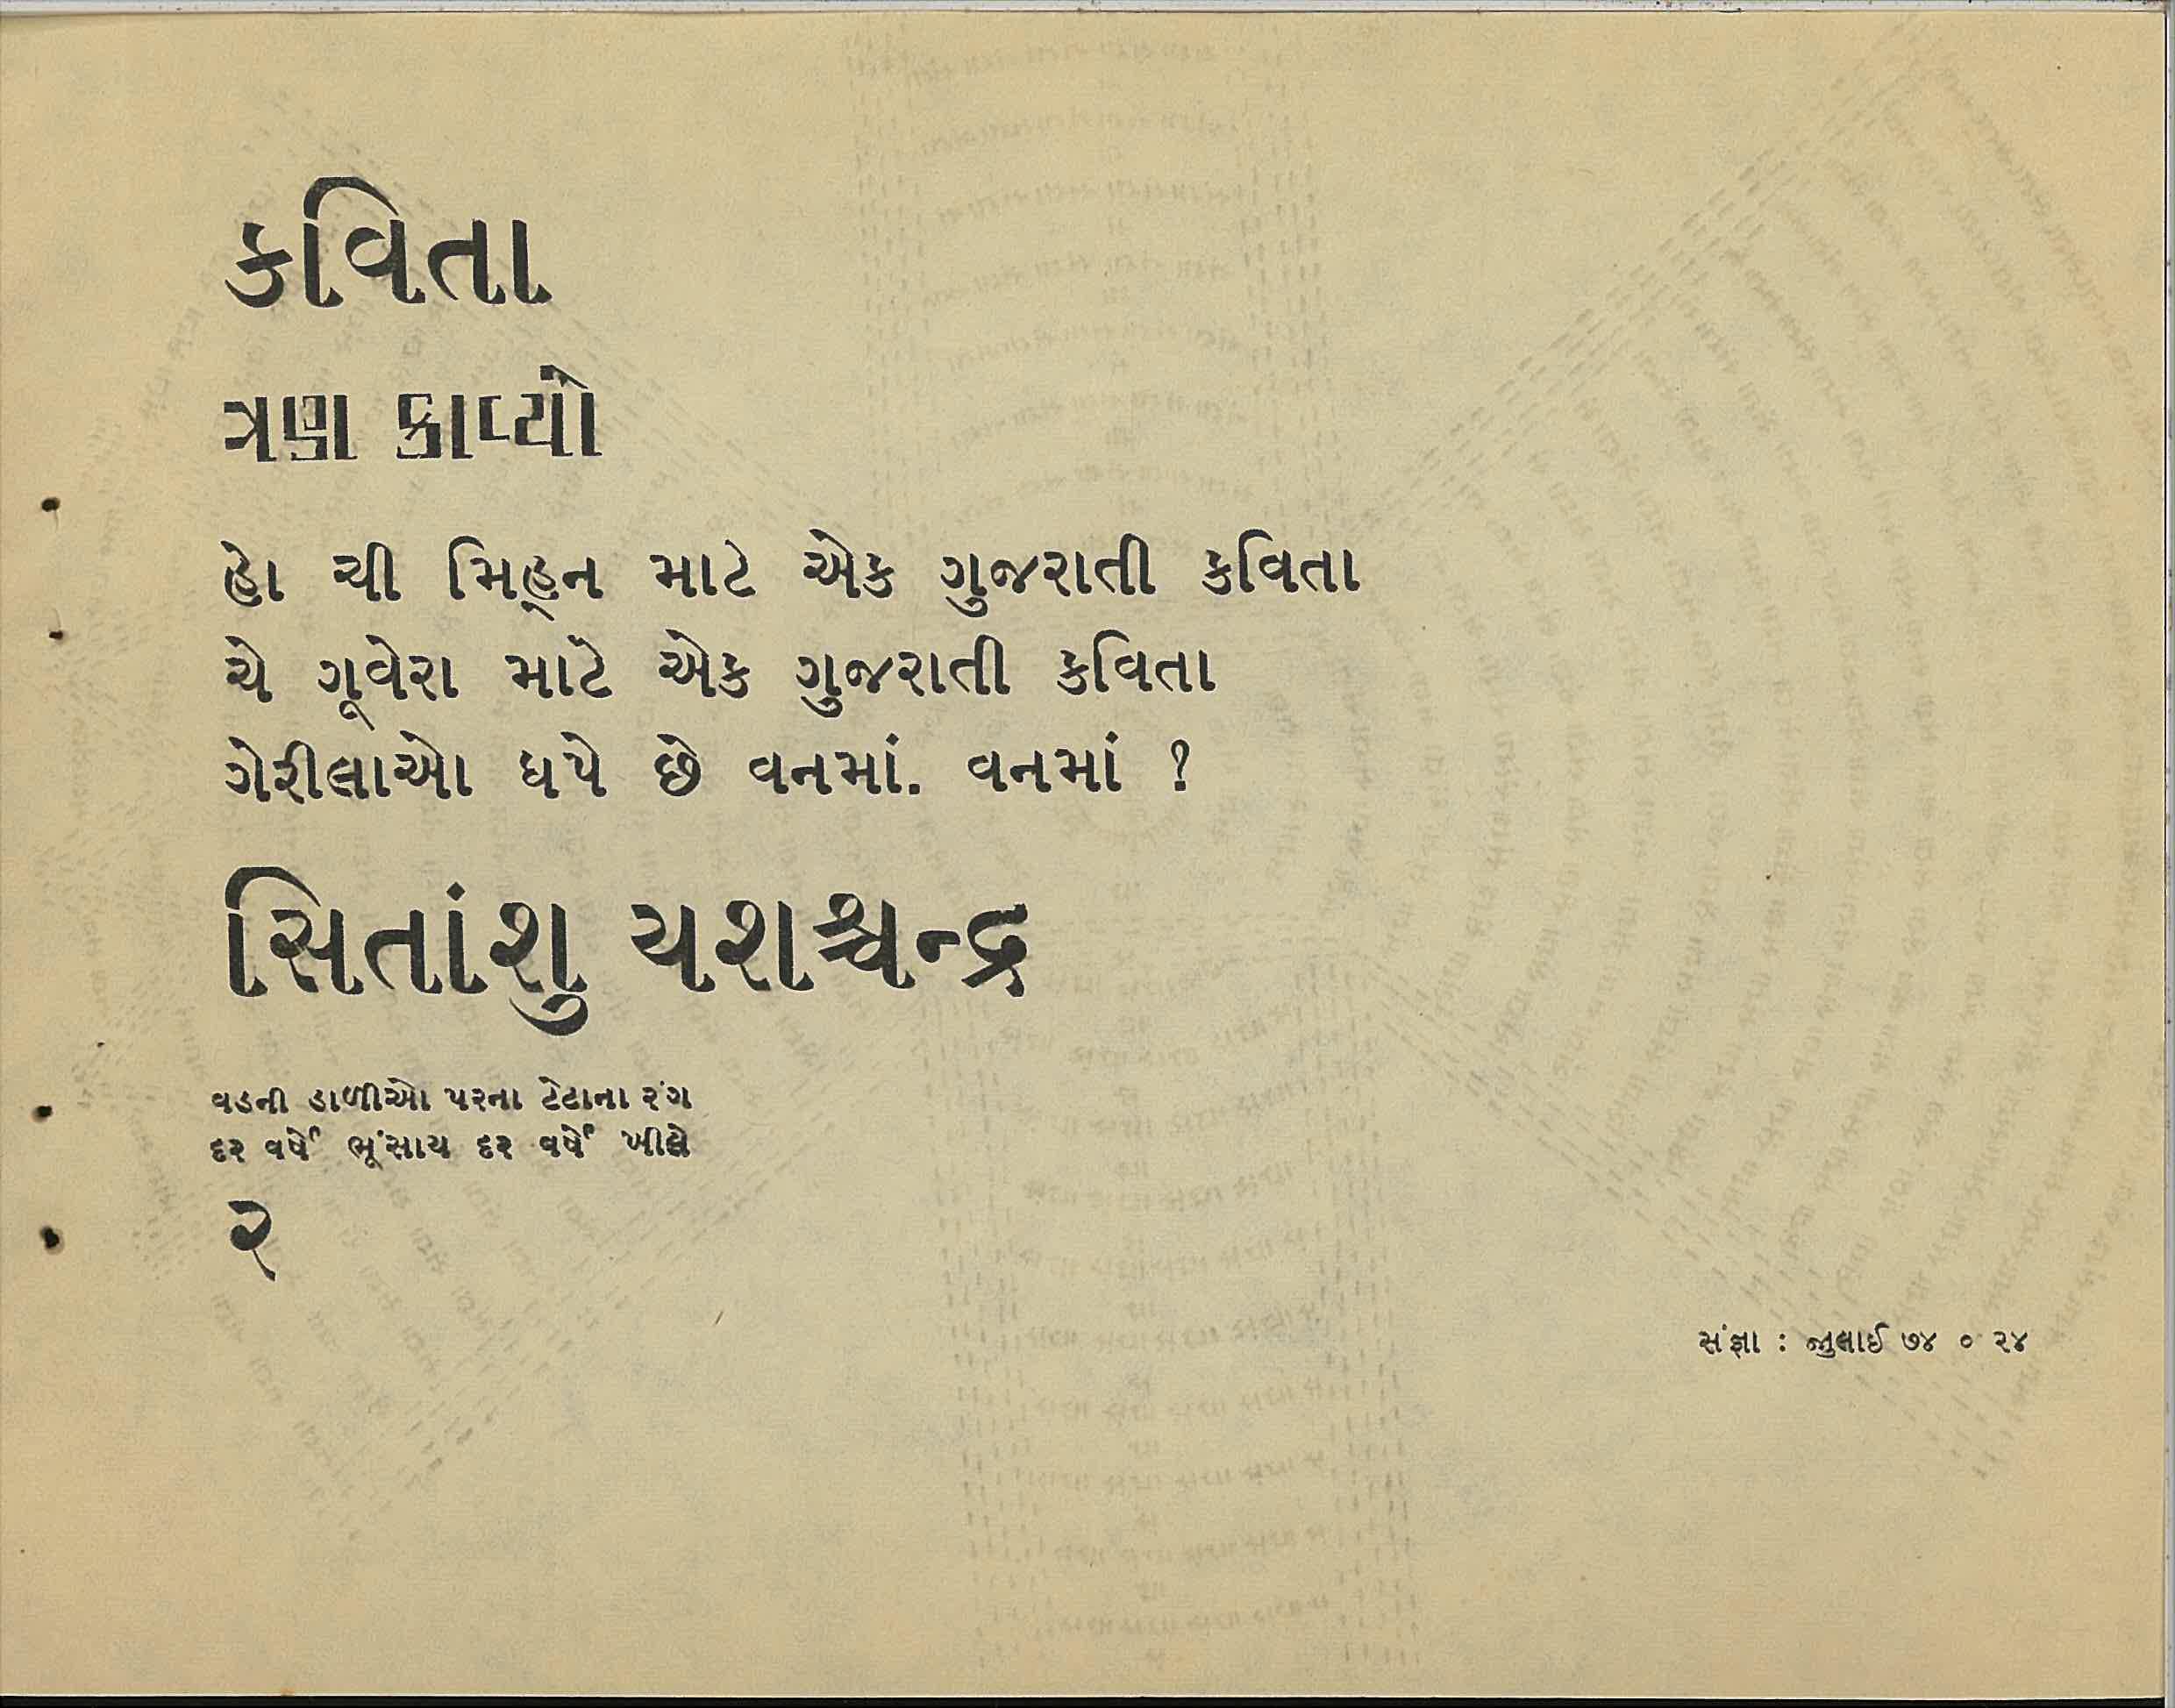 કવિતા
ત્રણ કાવ્યો
હો ચી મિહ્‌ન માટે એક ગુજરાતી કવિતા
ચે ગૂવેરા માટે એક ગુજરાતી કવિતા
ગેરીલાઓ ધપે છે વનમાં. વનમાં ?
સિતાંશુ યશશ્ચન્દ્ર
વડની ડાળીઓ પરના ટેટાના રંગ
દર વર્ષે ભૂંસાય દર વર્ષે ખીલે
૨
સંજ્ઞા : જુલાઈ ૭૪ ૦ ૨૪